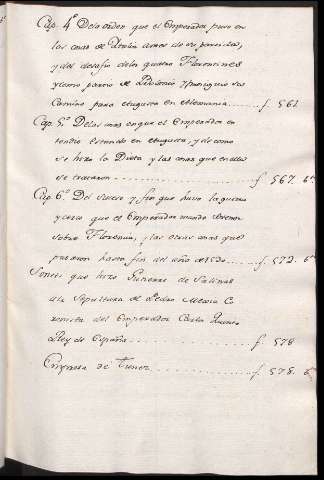 Cap. 4º De la orden que el Emperador puso en
las cosas de Italia antes de su partida,
y del desafio de los quatro Florentines
y como partio de Bolonia y prosiguio su
Camino para Augusta en Alemania ...... f. 561
Cap. 5º De las cosas en que el Emperador en
tendio estando en Augusta, y de como
se hizo la Dieta y las cosas que en ella
se trataron .................. f 567. bta
Cap. 6º Del suceso y fin que huvo la guerra
y cerco que el Emperador mando
sobre Florencia, y las otras cosas que
pasaron hasta fin del año de 1530 .. f. 572. bta
Soneto que hizo Gutierre de Salinas
a la Sepultura de Pedro Mexia C
ronista del Emperador Carlos Quinto
Rey de España .................. f. 578
Empresa de Tunez .................. f. 578. b